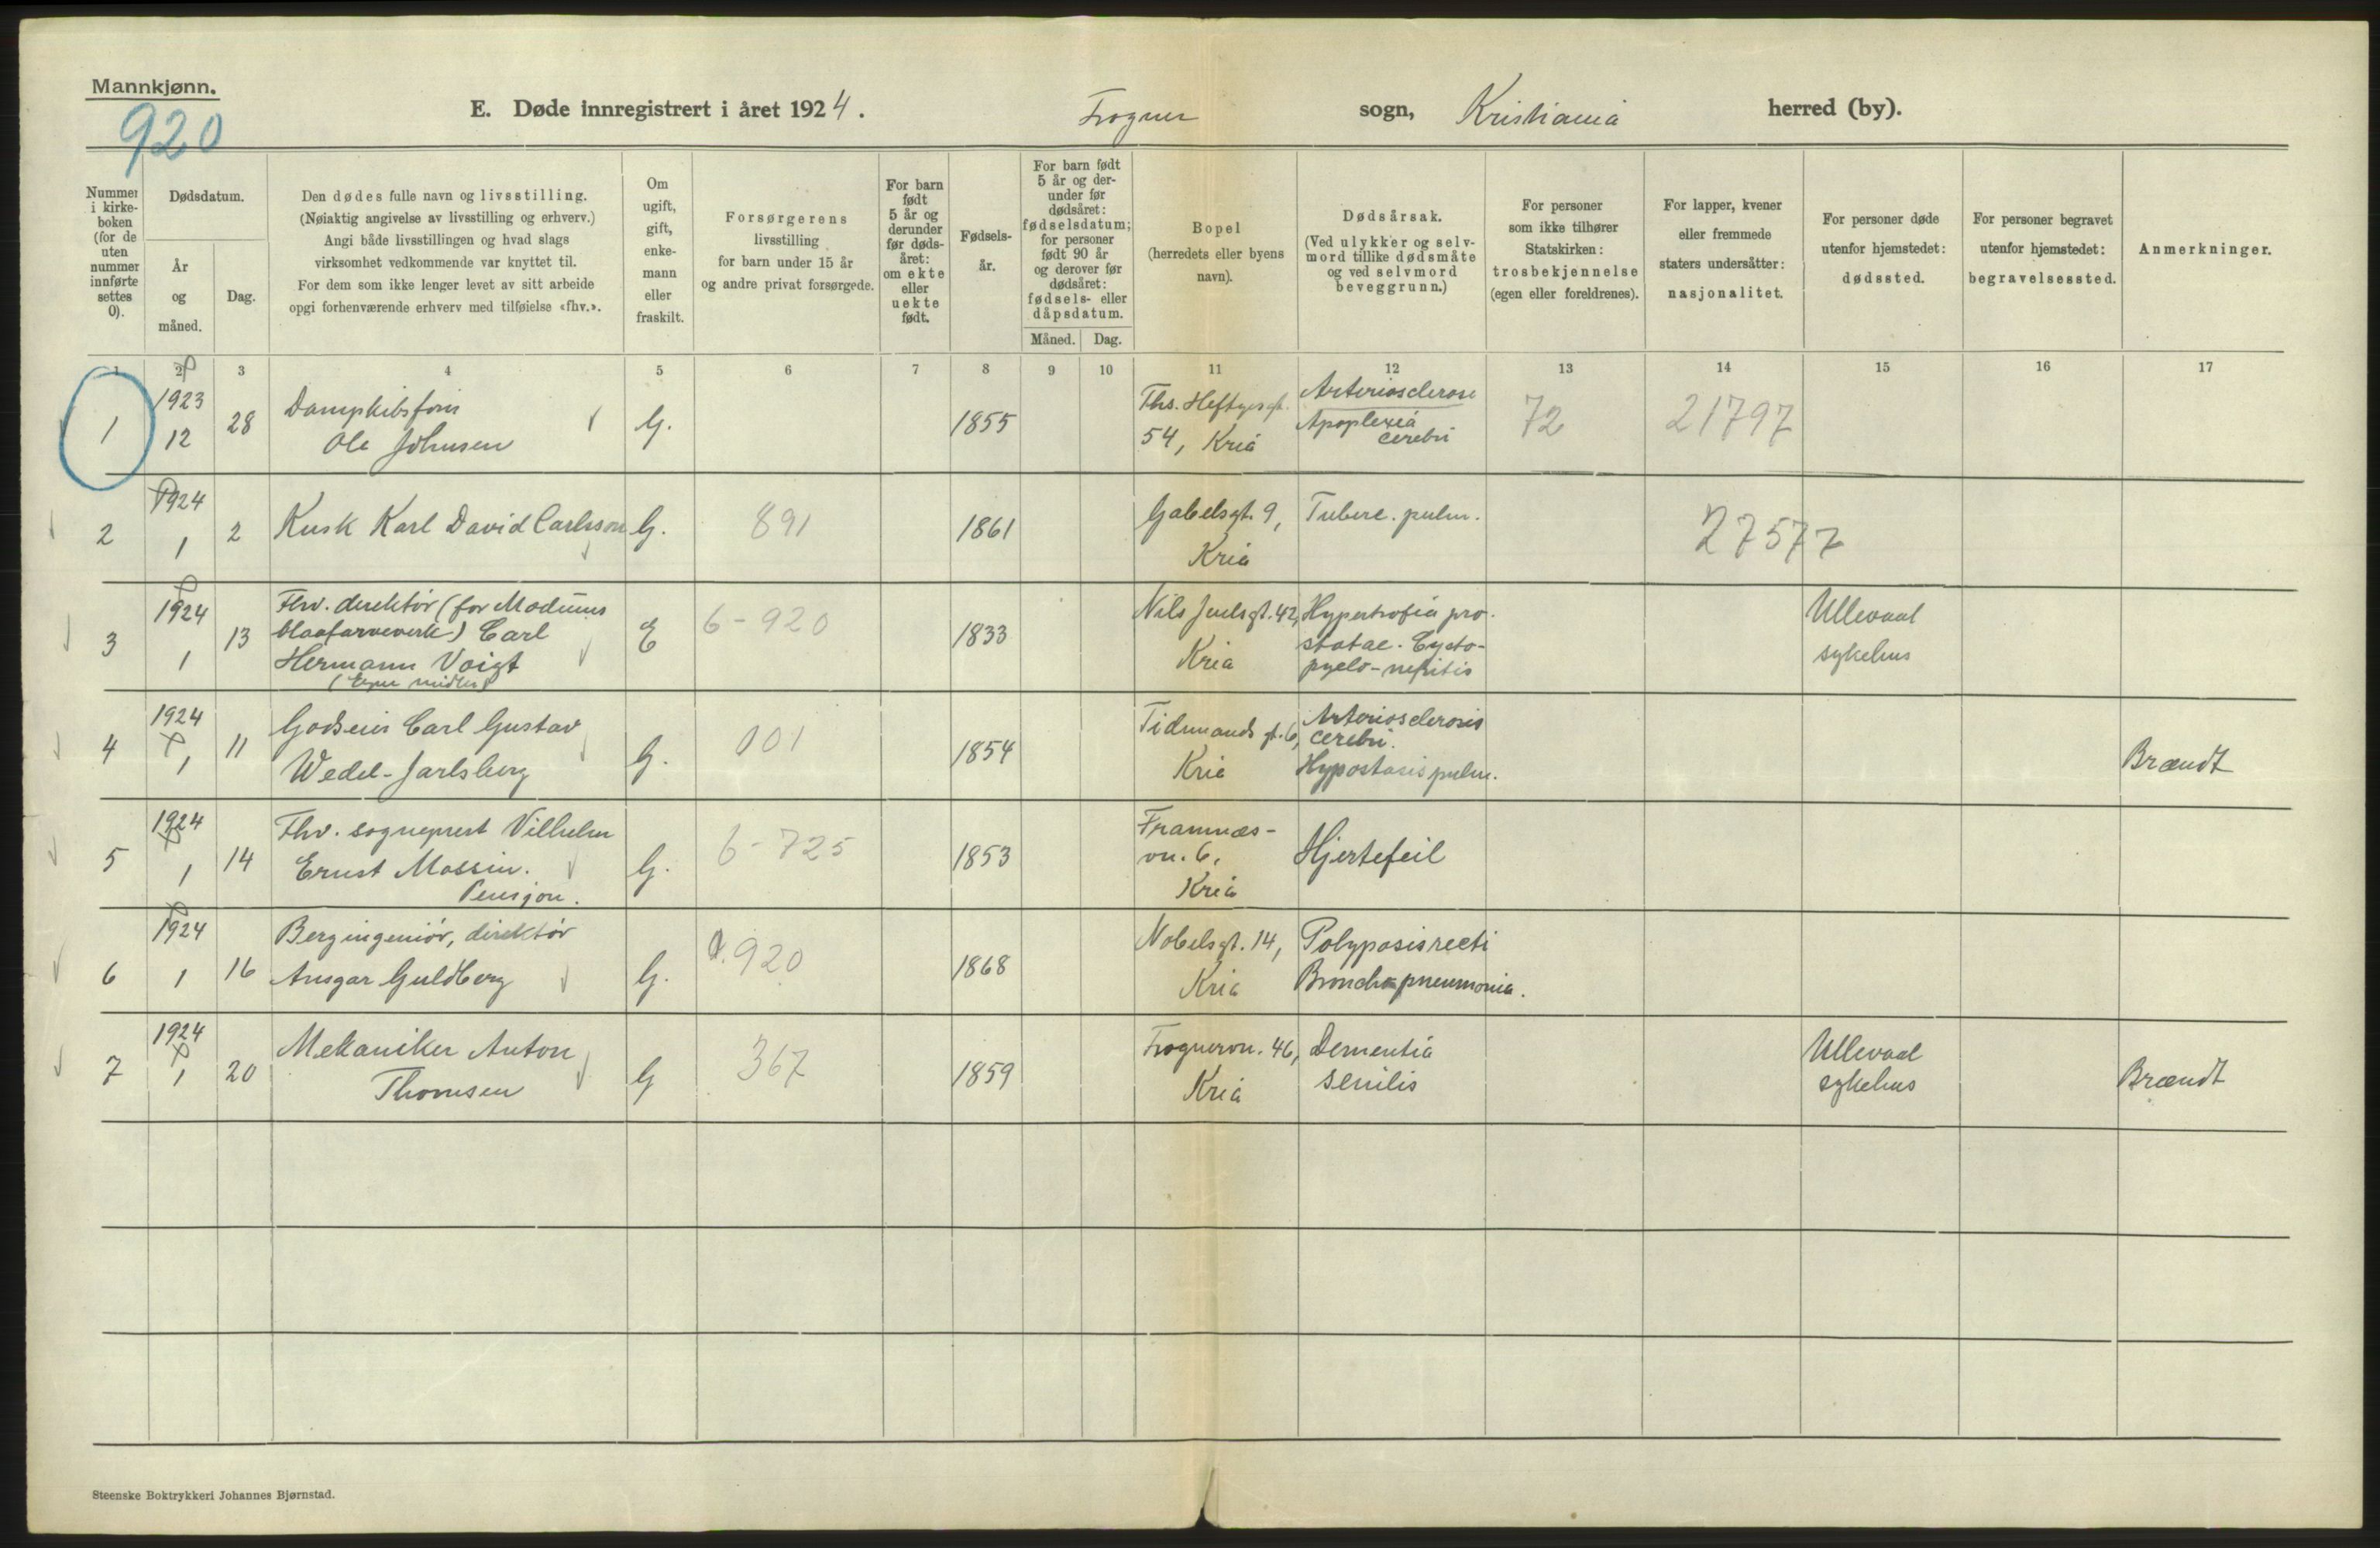 Mannkjønn.
920
E. Døde innregistrert i året 1924.
Frogner sogn, Kristiania herred (by).
Nummer i kirke-boken (for de uten nummer innførte settes 0).
Dødsdatum.
År og måned.
Dag.
Den dødes fulle navn og livsstilling.
(Nøiaktig angivelse av livsstilling og erhverv.)
Angi både livsstillingen og hvad slags
virksomhet vedkommende var knyttet til.
For dem som ikke lenger levet av sitt arbeide
opgi forhenværende erhverv med tilføielse «fhv.».
Om ugift, gift, enke-mann eller fraskilt.
Forsørgerens
livsstilling
for barn under 15 år
og andre privat forsørgede.
For barn født 5 år og derunder før døds-året: om ekte eller uekte født.
Fødsels-år.
For barn født 5 år og der-under før dødsåret: fødselsdatum; for personer født 90 år og derover før dødsåret: fødsels- eller dåpsdatum.
Måned. Dag.
Bopel
(herredets eller byens
navn).
Dødsårsak.
(Ved ulykker og selv-
mord tillike dødsmåte
og ved selvmord
beveggrunn.)
For personer
som ikke tilhører
Statskirken:
trosbekjennelse
(egen eller foreldrenes).
For lapper, kvener
eller fremmede
staters undersåtter:
nasjonalitet.
For personer døde
utenfor hjemstedet:
dødssted.
For personer begravet
utenfor hjemstedet:
begravelsessted.
Anmerkninger.
1 2 3 4 5 6 7 8 9 10 11 12 13 14 15 16 17
1 1923 12 28 Dampskibsfører
Ole Johnsen G. 1855 Ths. Heftyesgt.
54, Kria Arteriosclerose
Apoplexia
cerebri 72 21797
2 1924 1 2 Kusk Karl David Carlsson G. 891 1861 Gabelsgt. 9,
Kria Tuberc. pulm. 27577
3 1924 1 13 Fhv. direktør (for Modums
blaafarveverk) Carl
Hermann Voigt
(Egne midler) E 6-920 1833 Nils Juelsgt. 42,
Kria Hypertrofia pro-
statae. Cysto-
pyelo-nefritis Ullevaal
sykehus
4 1924 1 11 Godseier Carl Gustav
Wedel-Jarlsberg G. 001 1854 Tidemands gt. 6,
Kria Arteriosclerosis
cerebri.
Hypostasis pulm. Brændt
5 1924 1 14 Fhv. sogneprest Vilhelm
Ernst Massin.
Pensjon. G. 6-725 1853 Framnæs-
vn. 6,
Kria Hjertefeil
6 1924 1 16 Bergingeniør, direktør
Ansgar Guldberg G. a.920 1868 Nobelsgt. 14,
Kria Polyposis recti
Bronchopneumonia.
7 1924 1 20 Mekaniker Anton
Thomsen G 367 1859 Frognervn. 46,
Kria Dementia
senilis Ullevaal
sykehus Brændt
Steenske Boktrykkeri Johannes Bjørnstad.